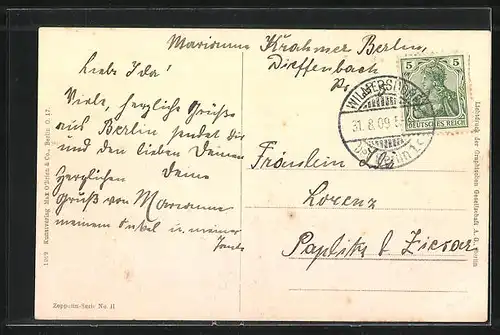 Marianne Krahmer Berlin,
Dieffenbach
Liebe Ida!
Viele, herzliche Grüße
aus Berlin sendet dir
und den lieben Deinen
Deine
Herzlichen
Gruß von Marianne
meinem Onkel u. meiner
Tante
5 5
DEUTSCHES REICH
WILMERSDORF
31.8.09.
Fräulein
Lorenz
Paplitz b Ziesar
1209 Kunstverlag Max O'Brien & Co., Berlin O. 17.
Zeppelin-Serie No. 11
Lichtdruck der Graphischen Gesellschaft A. G. Berlin